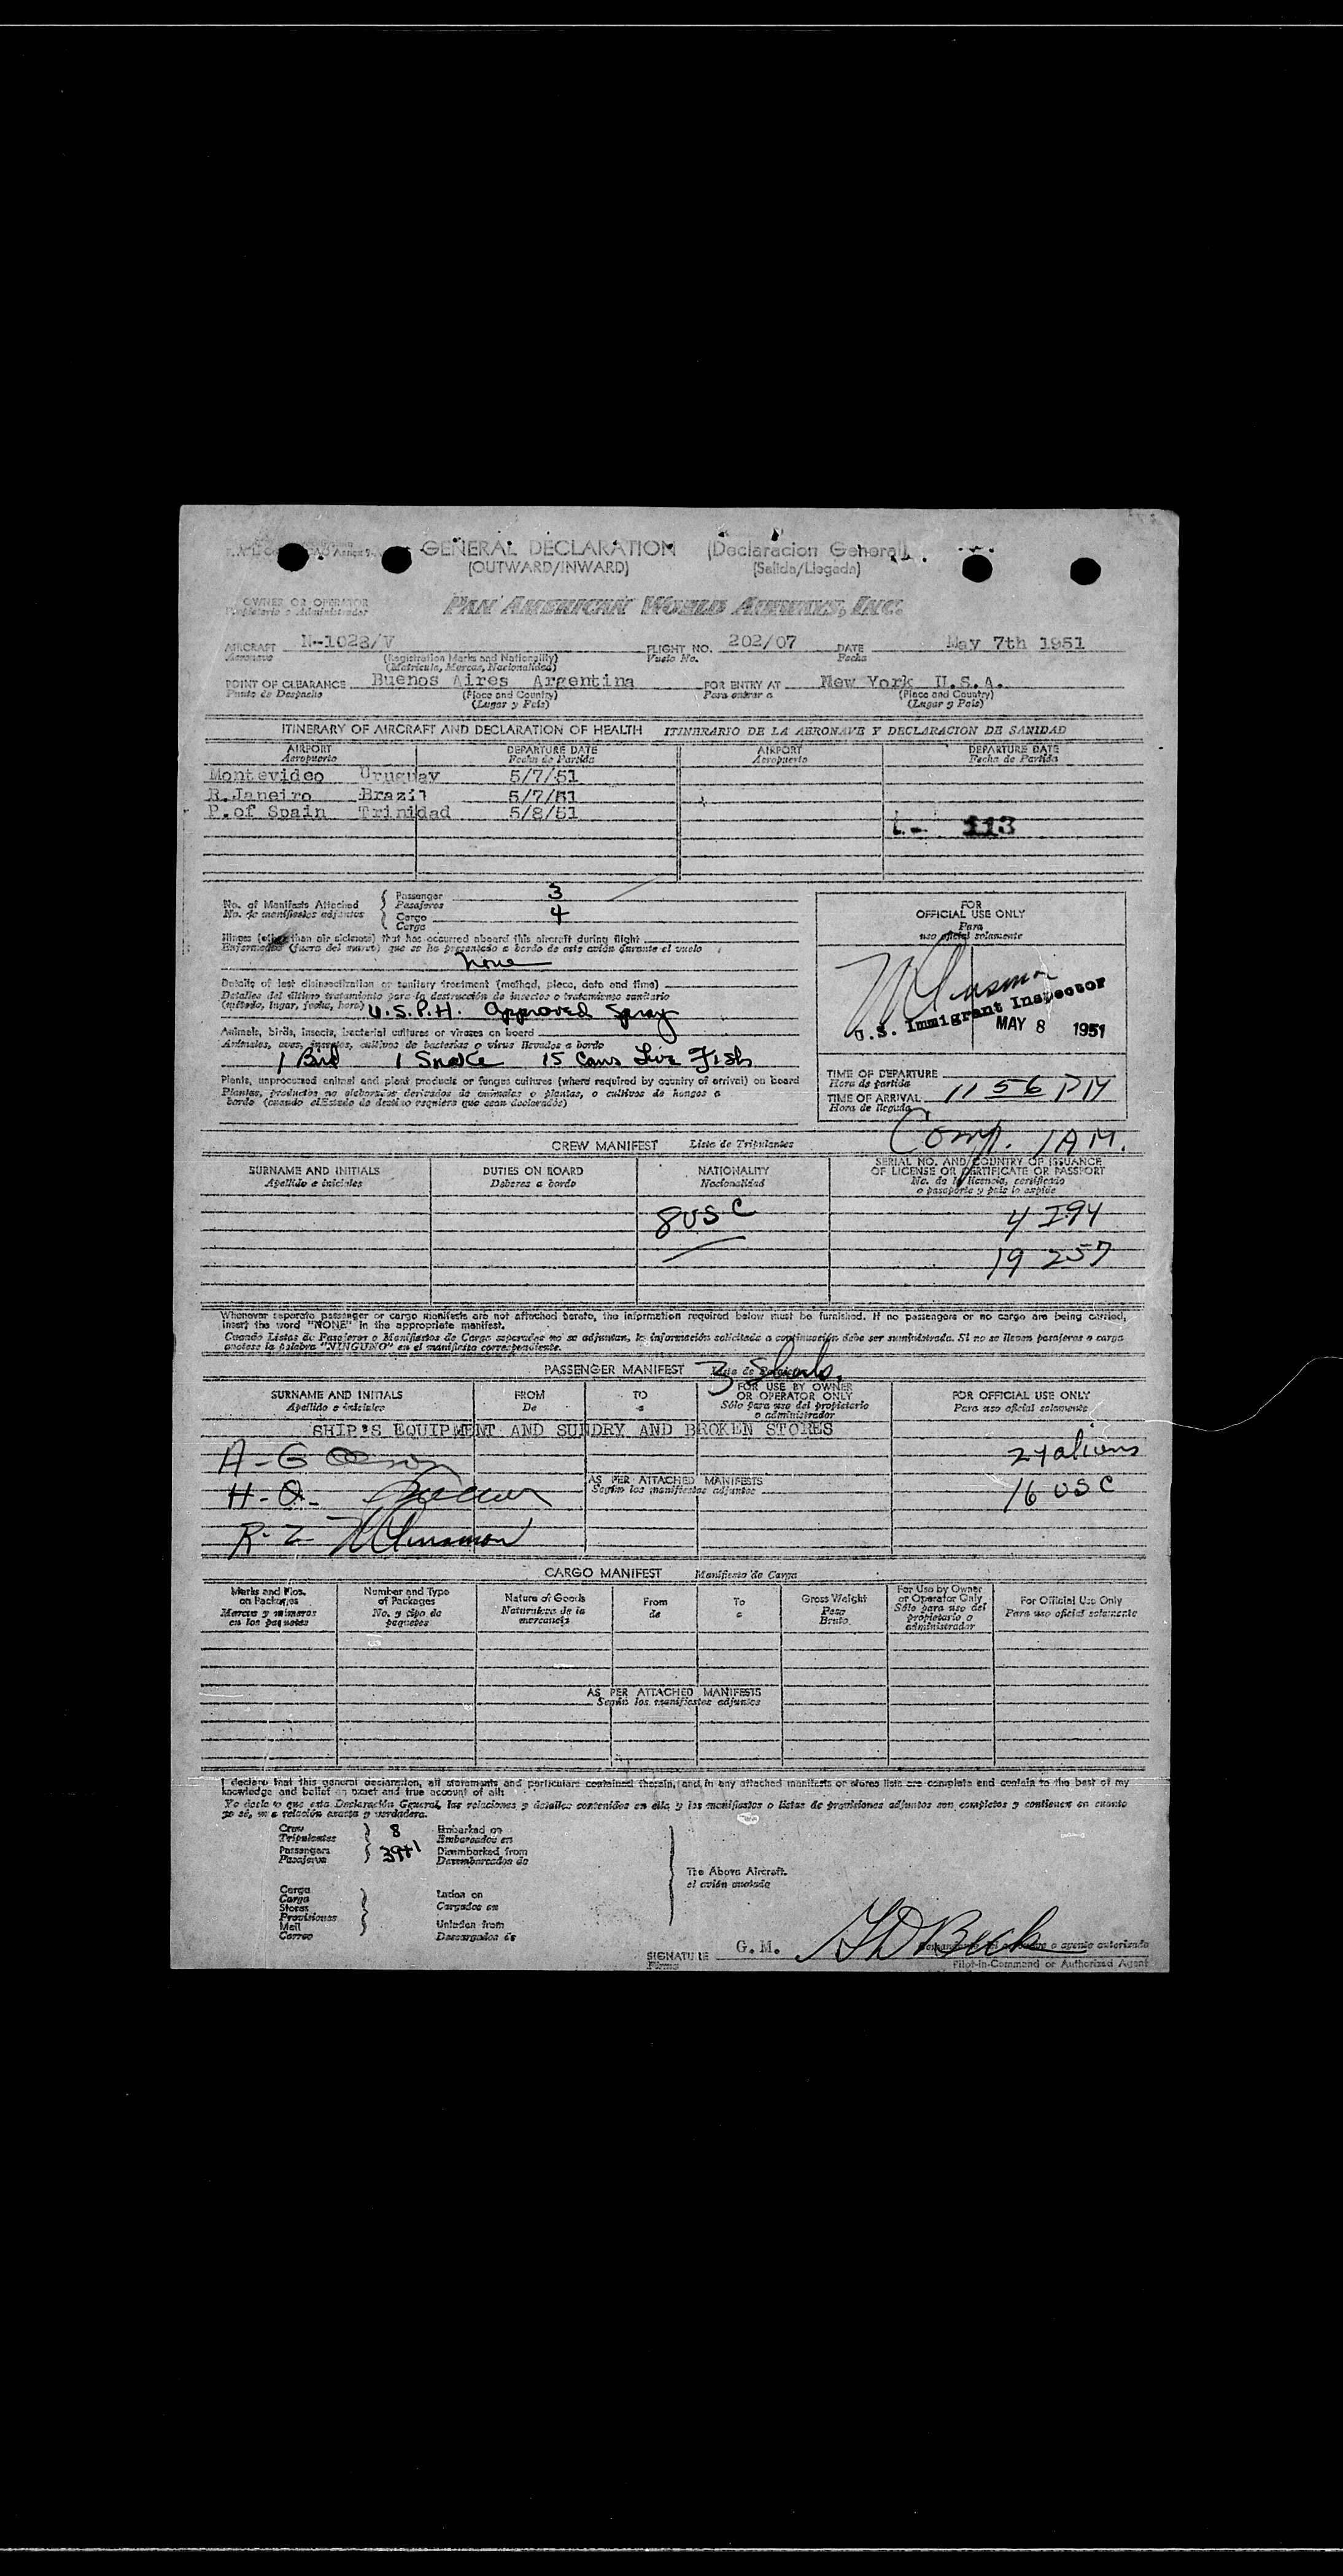 GENERAL DECLARATION (Declaracion General)
(OUTWARD/INWARD) (Salida/Llegada)
OWNER OR OPERATOR
Propietario o Administrador
PAN AMERICAN WORLD AIRWAYS, INC.
AIRCRAFT N-1028/V FLIGHT NO. 202/07 DATE May 7th 1951
Aeronave (Registration Marks and Nationality) Vuelo No. Fecha
(Matrícula, Marcas, Nacionalidad)
POINT OF CLEARANCE Buenos Aires Argentina FOR ENTRY AT New York U.S.A.
Punto de Despacho (Place and Country) Para entrar a (Place and Country)
(Lugar y País) (Lugar y País)
ITINERARY OF AIRCRAFT AND DECLARATION OF HEALTH ITINERARIO DE LA AERONAVE Y DECLARACION DE SANIDAD
AIRPORT DEPARTURE DATE AIRPORT DEPARTURE DATE
Aeropuerto Fecha de Partida Aeropuerto Fecha de Partida
Montevideo Uruguay 5/7/51
R.Janeiro Brazil 5/7/51
P.of Spain Trinidad 5/8/51
113
No. of Manifests Attached Passenger 3
No. de manifiestos adjuntos Pasajeros
Cargo 4
Carga
Illness (other than air sickness) that has occurred aboard this aircraft during flight
Enfermedad (fuera del mareo) que se ha presentado a bordo de este avión durante el vuelo
None
Details of last disinsectization or sanitary treatment (method, place, date and time)
Detalles del último tratamiento para la destrucción de insectos o tratamiento sanitario
(método, lugar, fecha, hora) U.S.P.H. Approved Spray
Animals, birds, insects, bacterial cultures or viruses on board
Animales, aves, insectos, cultivos de bacterias o virus llevados a bordo
1 Bird 1 Snake 15 Cans Live Fish
Plants, unprocessed animal and plant products or fungus cultures (where required by country of arrival) on board
Plantas, productos no elaborados derivados de animales o plantas, o cultivos de hongos a
bordo (cuando el Estado de destino requiera que sean declarados)
FOR
OFFICIAL USE ONLY
Para
uso oficial solamente
U.S. Immigrant Inspector
MAY 8 1951
TIME OF DEPARTURE
Hora de partida
TIME OF ARRIVAL 11 56 PM
Hora de llegada
Comp. 1AM.
CREW MANIFEST Lista de Tripulantes
SURNAME AND INITIALS DUTIES ON BOARD NATIONALITY SERIAL NO. AND COUNTRY OF ISSUANCE
OF LICENSE OR CERTIFICATE OR PASSPORT
Apellido e iniciales Deberes a bordo Nacionalidad No. de la licencia, certificado
o pasaporte y país lo expide
8 USC 4 I94
19 257
Whenever separate passenger or cargo manifests are not attached hereto, the information required below must be furnished. If no passengers or no cargo are being carried,
insert the word "NONE" in the appropriate manifest.
Cuando Listas de Pasajeros o Manifiestos de Cargo separados no se adjuntan, la información solicitada a continuación debe ser suministrada. Si no se llevan pasajeros o carga
anotese la palabra "NINGUNO" en el manifiesto correspondiente.
PASSENGER MANIFEST Lista de Pasajeros
SURNAME AND INITIALS FROM TO FOR USE BY OWNER
OR OPERATOR ONLY FOR OFFICIAL USE ONLY
Apellido e iniciales De a Sólo para uso del propietario
o administrador Para uso oficial solamente
SHIP'S EQUIPMENT AND SUNDRY AND BROKEN STORES
24 aliens
A-G
AS PER ATTACHED MANIFESTS
Según los manifiestos adjuntos
H-Q- 16 USC
R-Z
CARGO MANIFEST Manifiesto de Carga
Marks and Nos.
on Packages
Marcas y números
en los paquetes
Number and Type
of Packages
No. y tipo de
paquetes
Nature of Goods
Naturaleza de la
mercancía
From
de
To
a
Gross Weight
Peso
Bruto
For Use by Owner
or Operator Only
Sólo para uso del
propietario o
administrador
For Official Use Only
Para uso oficial solamente
AS PER ATTACHED MANIFESTS
Según los manifiestos adjuntos
I declare that this general declaration, all statements and particulars contained therein, and in any attached manifests or stores lists are complete and contain to the best of my
knowledge and belief an exact and true account of all:
Yo declaro que esta Declaración General, las relaciones y detalles contenidos en ella y los manifiestos o listas de provisiones adjuntos son completos y contienen en cuanto
yo sé, una relación exacta y verdadera.
Crew 8 Embarked on
Tripulantes Embarcados en
Passengers 39+1 Disembarked from
Pasajeros Desembarcados de
The Above Aircraft.
el avión anotado
Cargo
Carga
Stores
Provisiones
Mail
Correo
Laden on
Cargados en
Unladen from
Descargados de
SIGNATURE G.M. Beck
Firma Comandante del aeronave o agente autorizado
Pilot-in-Command or Authorized Agent